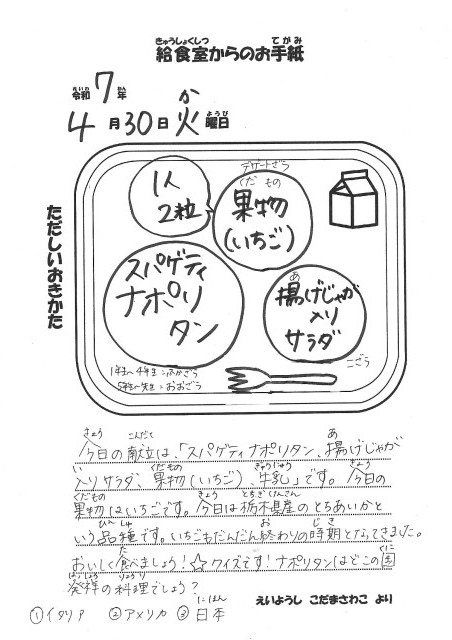 きゅうしょくしつ てがみ
給食室からのお手紙
れいわ ねん
令和7年
か ようび
4月30日火曜日
ただしいおきかた
1人
2粒
デザートざら
くだもの
果物
(いちご)
スパゲティ
ナポリ
タン
あ
揚げじゃが
入り
サラダ
こざら
1年生~4年生:ふかざら
5年生~先生:おおざら
きょう こんだて あ
今日の献立は、「スパゲティナポリタン、揚げじゃが
い くだもの ぎゅうにゅう きょう
入りサラダ、果物(いちご)、牛乳」です。今日の
くだもの きょう とちぎけんさん
果物はいちごです。今日は栃木県産のとちあいかと
ひんしゅ お じき
いう品種です。いちごもだんだん終わりの時期となってきました。
た くに
おいしく食べましょう!☆クイズです!ナポリタンはどこの国
はっしょう りょうり
発祥の料理でしょう?
にほん
①イタリア ②アメリカ ③日本
えいようし こだまさわこ より